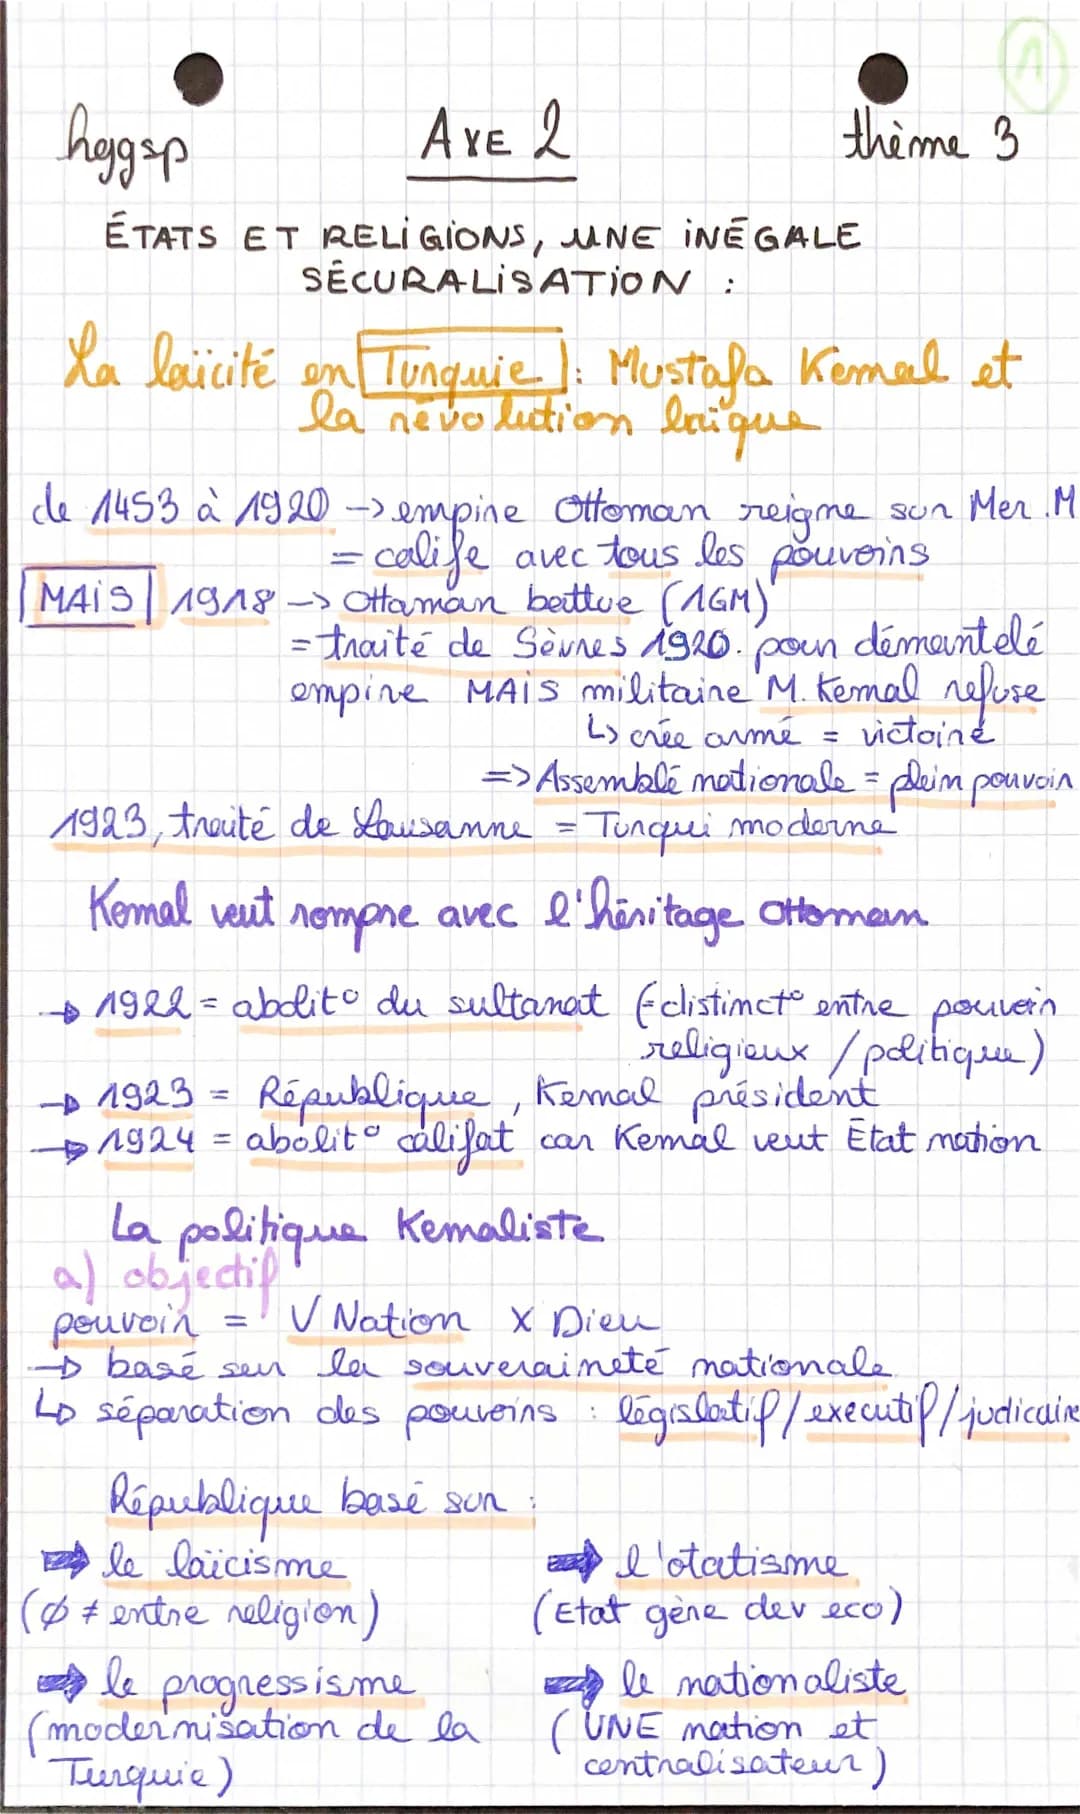 1
hggsp AXE 2 thème 3
ÉTATS ET RELIGIONS, UNE INÉGALE
SÉCURALISATION :
La laïcité en Turquie : Mustafa Kemal et
la révolution laïque
de 1453 à 1920 -> empire Ottoman reigne sur Mer.M
= calife avec tous les pouvoirs
MAIS 1918 -> Ottaman battue (1GM)
= traité de Sèvres 1920. pour démantelé
empire MAIS militaire M. Kemal refuse
↳ crée armé = victoire
=> Assemblé nationale = plein pouvoir
1923, traité de Lausanne = Turqui moderne
Kemal veut rompre avec l'héritage Ottoman
→ 1922 = abolit° du sultanat (= distinct° entre pouvoir
religieux / politique)
→ 1923 = République, Kemal président
→ 1924 = abolit° califat car Kemal veut État nation
La politique Kemaliste
a) objectif
pouvoir = V Nation X Dieu
→ basé sur la souveraineté nationale
↳ séparation des pouvoirs : législatif/executif/judicaire
République basé sur :
⇒ le laïcisme
(Ø ≠ entre religion)
⇒ le progressisme
(modernisation de la
Turquie)
⇒ l'etatisme
(Etat gère dev eco)
⇒ le nationaliste
(UNE nation et
centralisateur)